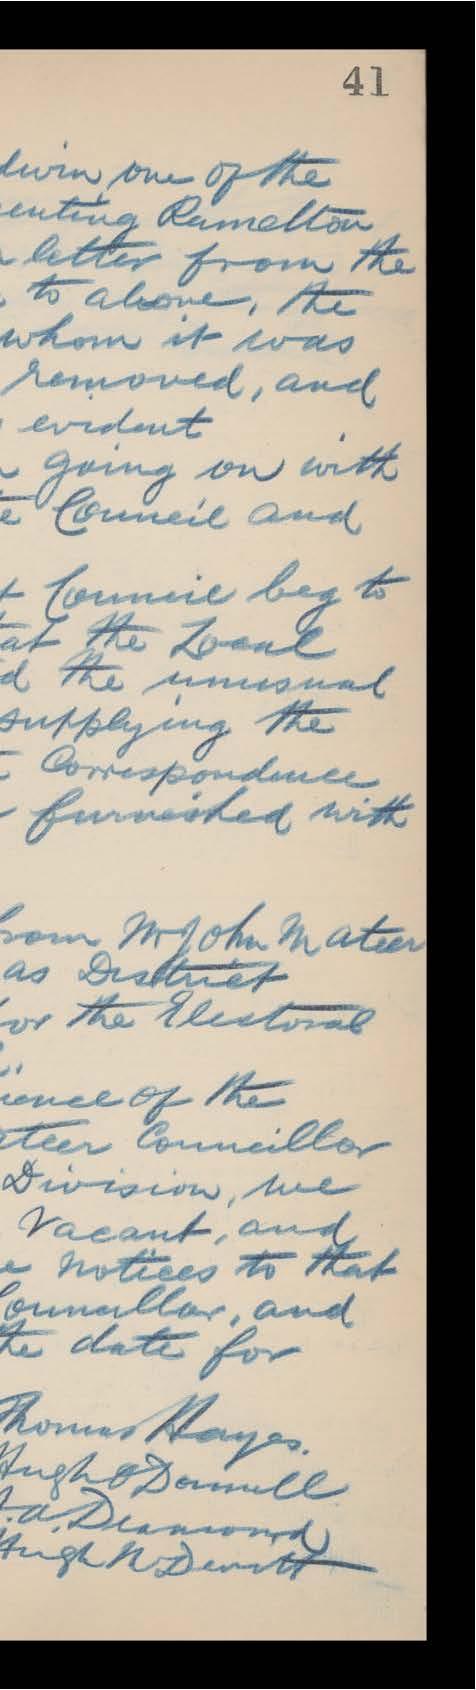 41
one of the
senting Ramelton
letter from the
to above, the
whom it was
removed, and
evident
going on with
Council and
Council beg to
at the Local
d the unusual
supplying the
Correspondence
furnished with
from Mr John Mateer
as District
for the Electoral
ience of the
ateer Councillor
Division, we
Vacant, and
notices to that
Councillor, and
the date for
Thomas Hayes.
Hugh O Donnell
A. Deamond
Hugh McDevitt